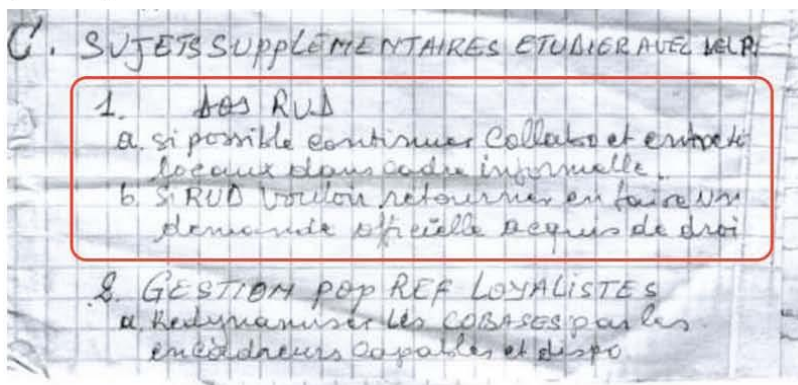 C. SUJETS SUPPLEMENTAIRES ETUDIER AVEC
1. DOS RUD
a. si possible continuer Collabo et
locaux dans cadre informelle.
b. Si RUD vouloir retourner en faire un
demande officielle acquis de droi
2. GESTION POP REF LOYALISTES
a. Redynamiser les COBASES par les
encadreurs capables et dispo